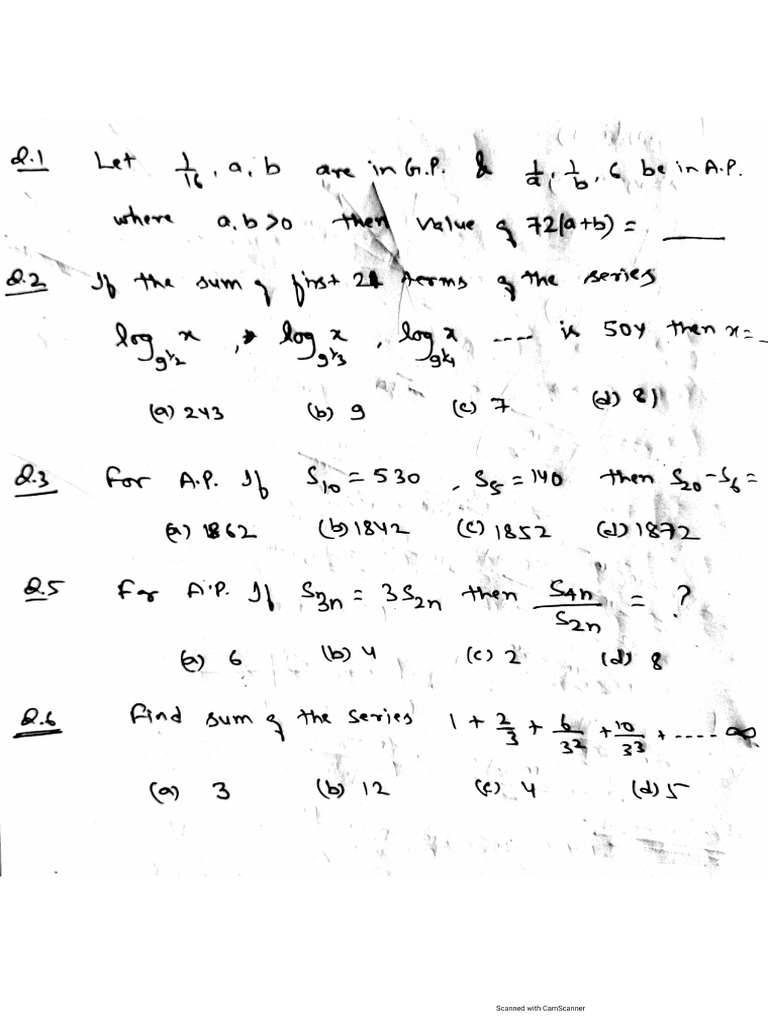 Q.1 Let 1/16, a, b are in G.P. & 1/a, 1/b, 6 be in A.P.
where a, b > 0 then value of 72(a+b) = ____
Q.2 If the sum of first 21 terms of the series
log_{9^{1/2}} x, log_{9^{1/3}} x, log_{9^{1/4}} x ---- is 504 then x = _
(a) 243 (b) 9 (c) 7 (d) 81
Q.3 For A.P. If S_{10} = 530, S_5 = 140 then S_{20} - S_6 =
(a) 1862 (b) 1842 (c) 1852 (d) 1872
Q.5 For A.P. If S_{3n} = 3S_{2n} then S_{4n}/S_{2n} = ?
(a) 6 (b) 4 (c) 2 (d) 8
Q.6 Find sum of the series 1 + 2/3 + 6/3^2 + 10/3^3 + ---- ∞
(a) 3 (b) 12 (c) 4 (d) 5
Scanned with CamScanner